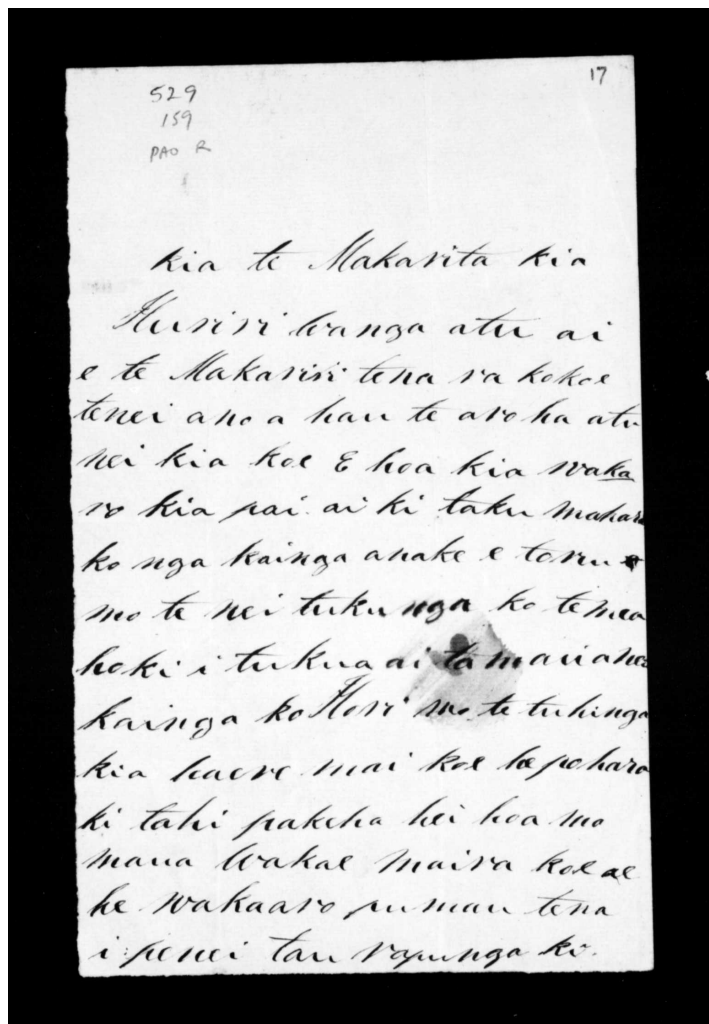 17
529
159
PAO R
kia te Makarita kia
Huriri wanga atu ai
e te Makariri tena ra kokoe
tenei ano a hau te aroha atu
nei kia koe E hoa kia waka
ro kia pai ai ki taku mahara
ko nga kainga anake e toru
mo te nei tuku nga ko temea
hoki i tukua ai ta maua nei
kainga ko Hori mo te tuhinga
kia haere mai koe he pohara
ki tahi pakeha hei hoa mo
maua Wakae maira koe ae
he wakaaro pumau tena
i penei tau rapunga ki.